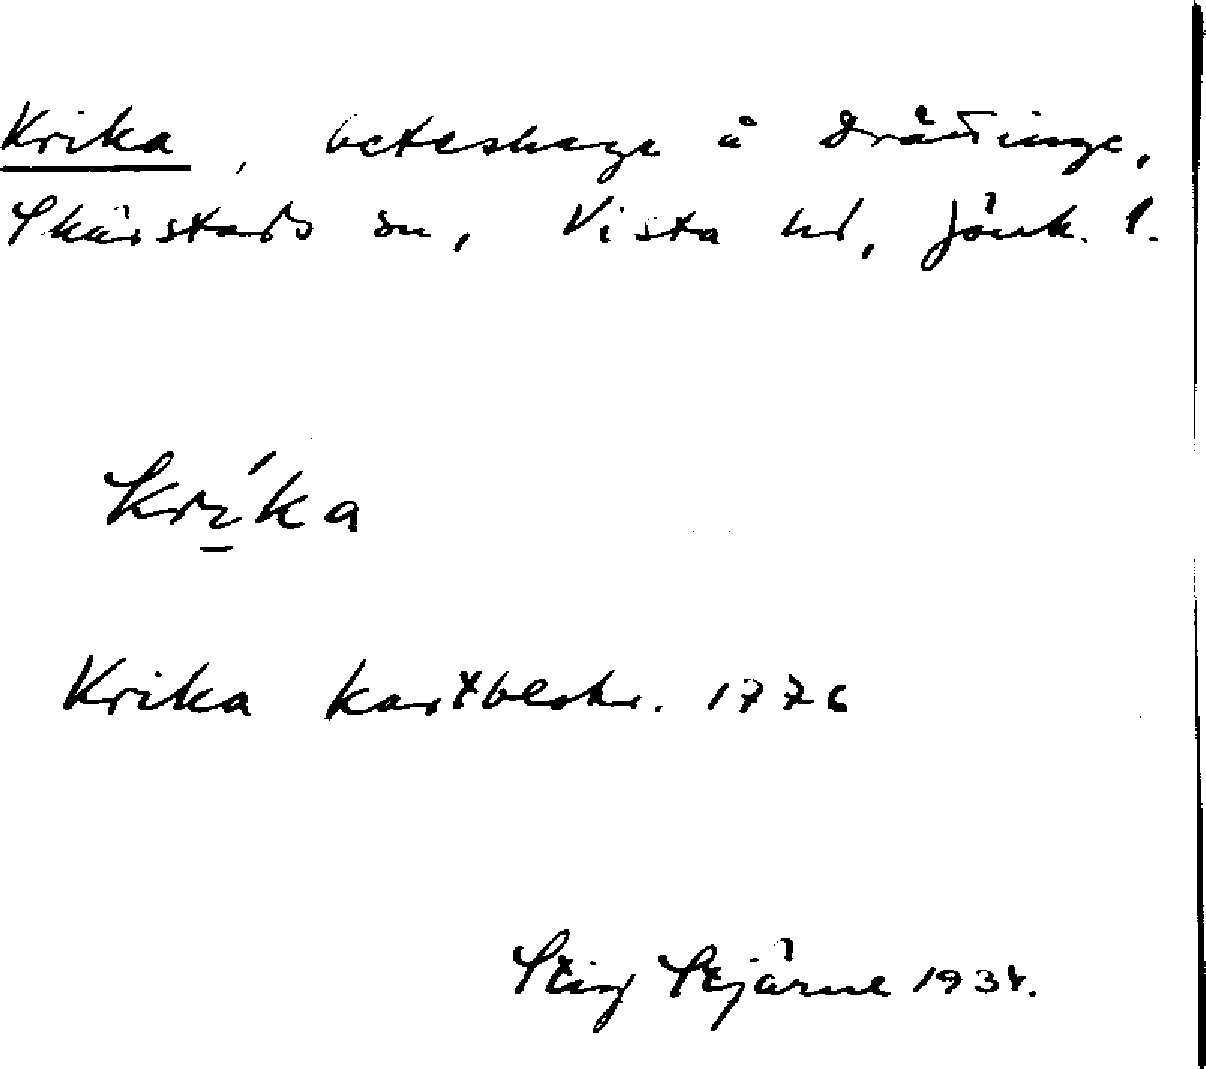 Krika, beteshage å Drättinge,
Skärstads sn, Vista hd, Jönk. l.
kri̱´ka
Krika kartbeskr. 1776
Stig Stjärne 1934.